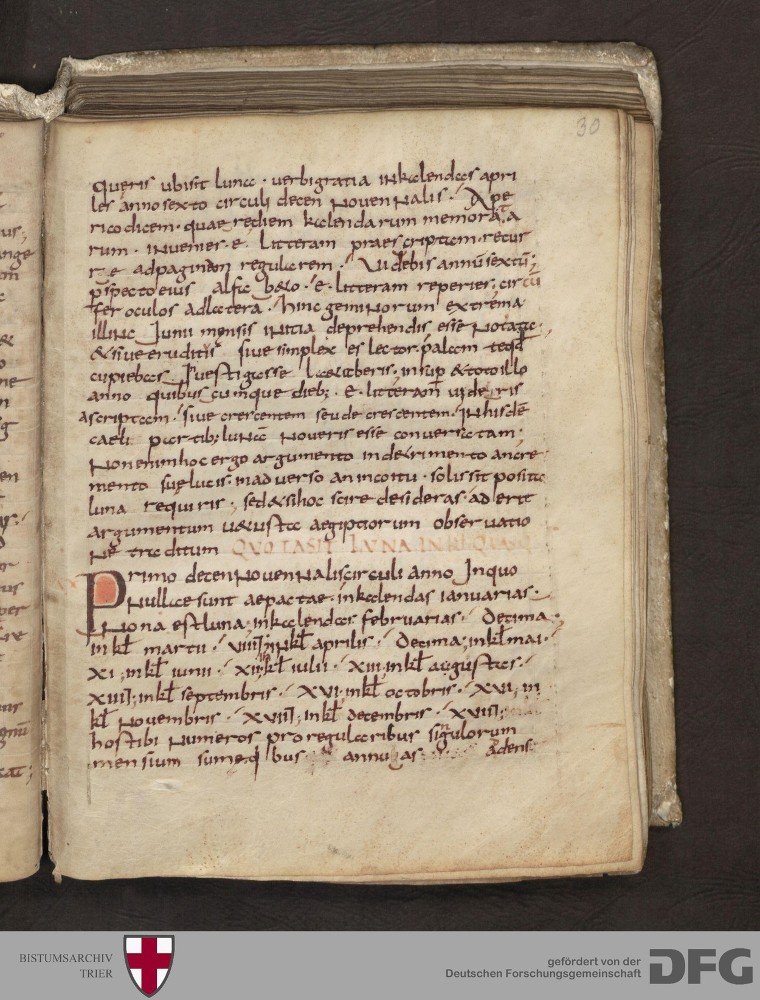 30
queris ubi sit luna · uerbi gratia in kalendas apri
les anno sexto circuli decen nouen nalis · Ape
rum · inuenies · e · litteram praescriptam · recur
re ad paginam regularem · Uidebis annū sextū;
p̄specto eius e · litteram reperies; circū
fer oculos ad laetera · hinc geminorum extrema
illinc Junii mensis initia deprehendis esse notata ·
& siue eruditus siue simplex es lector · palam
anno quibus cumque dieb; · e · litteram uideris
ascriptam · siue crescentem seu decrescentem · In his dē
caeli partib; lunā noueris esse conuersatam ·
Non enim hoc ergo argumento in detrimento an cre
mento suę lucis · in aduerso an in coitu · solis sit posita
luna requiris · sed & si hoc scire desideras · aderit
argumentum uetusta aegiptiorum obseruatio
ne traditum QUOTA SIT LUNA IN KL
Primo decen nouen nalis circuli anno Inquo
Nullae sunt aepactae · in kalendas ianuarias ·
Nona est luna; in kalendas februarias · Decima;
in kł martii · VIIII; in kł aprilis · Decima; in kł mai ·
XI; in kł iunii · XII; kł iulii · XIII; in kł augustas ·
XIIII; in kł septembris · XVI; in kł octobris · XVI; in
kł Nouembris · XVIII; in kł decembris · XVIII;
hos tibi numeros pro regularibus singulorum
mensium sume
BISTUMSARCHIV
TRIER
gefördert von der
Deutschen Forschungsgemeinschaft
DFG